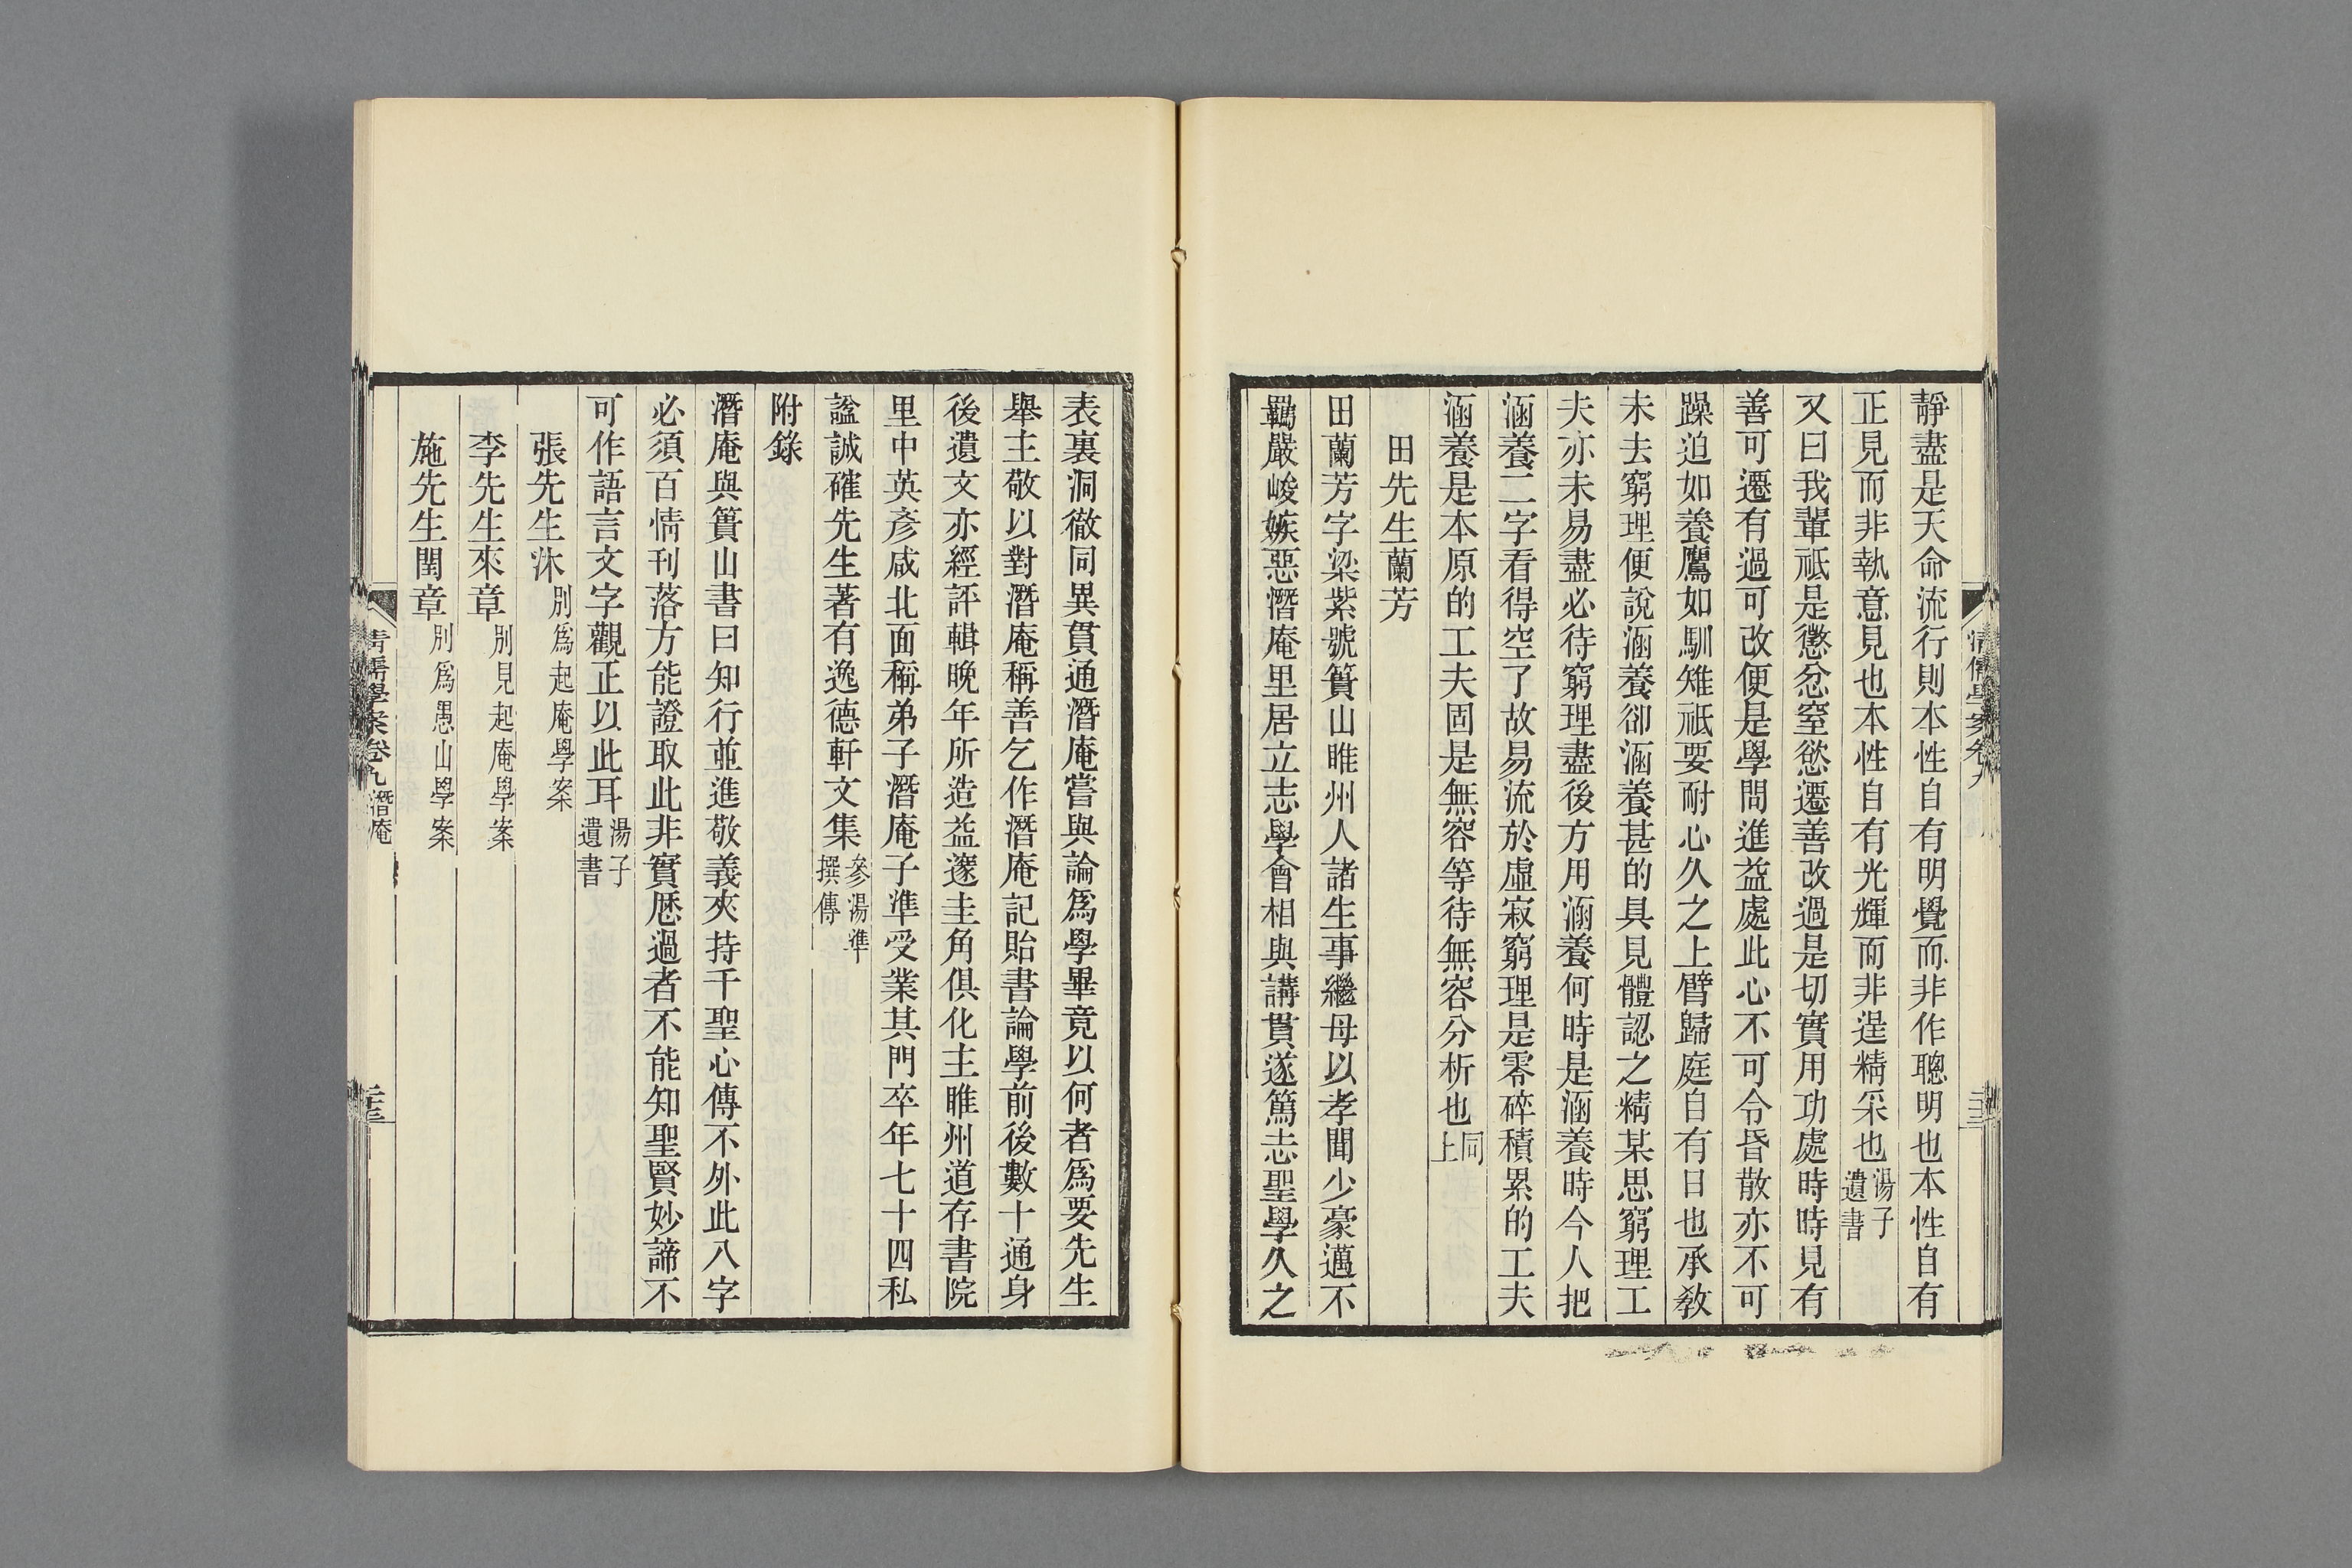 靜盡是天命流行則本性自有明覺而非作聰明也本性自有
正見而非執意見也本性自有光輝而非逞精采也湯子遺書
又曰我輩祗是懲忿窒慾遷善改過是切實用功處時時見有
善可遷有過可改便是學問進益處此心不可令昏散亦不可
躁迫如養鷹如馴雉祗要耐心久之上臂歸庭自有日也承敎
未去窮理便說涵養卻涵養甚的具見體認之精某思窮理工
夫亦未易盡必待窮理盡後方用涵養何時是涵養時今人把
涵養二字看得空了故易流於虛寂窮理是零碎積累的工夫
涵養是本原的工夫固是無容等待無容分析也同上
田先生蘭芳
田蘭芳字梁紫號簣山睢州人諸生事繼母以孝聞少豪邁不
羈嚴峻嫉惡潛庵里居立志學會相與講貫遂篤志聖學久之
清儒學案卷九
表裏洞徹同異貫通潛庵嘗與論爲學畢竟以何者爲要先生
舉主敬以對潛庵稱善乞作潛庵記貽書論學前後數十通身
後遺文亦經評輯晚年所造益邃圭角俱化主睢州道存書院
里中英彥咸北面稱弟子潛庵子準受業其門卒年七十四私
諡誠確先生著有逸德軒文集參湯準撰傳
附錄
潛庵與簣山書曰知行並進敬義夾持千聖心傳不外此八字
必須百情刊落方能證取此非實歷過者不能知聖賢妙諦不
可作語言文字觀正以此耳湯子遺書
張先生沐別爲起庵學案
李先生來章別見起庵學案
施先生閏章別爲愚山學案
清儒學案卷九 潛庵